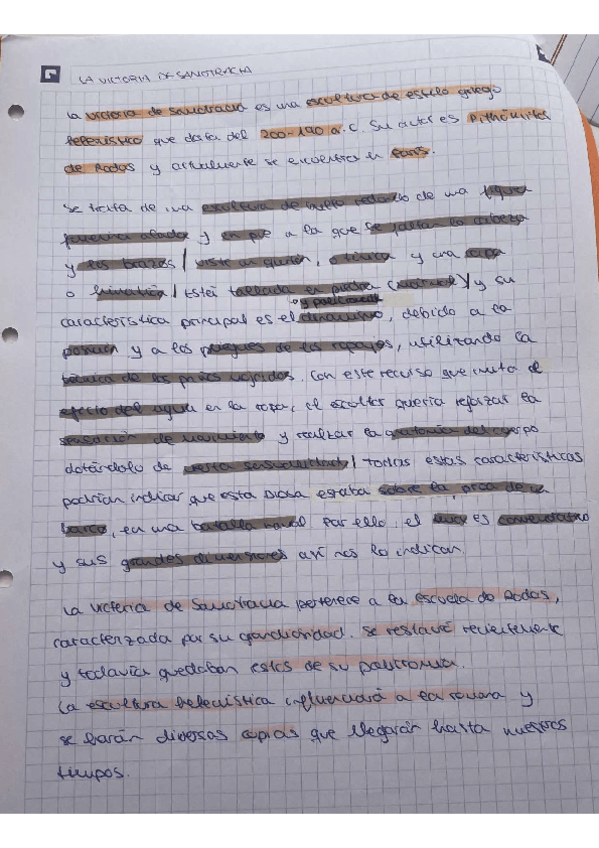 LA VICTORIA DE SAMOTRACIA
La victoria de Samotracia es una escultura de estilo griego
helenístico que data del 200-190 a.C. Su autor es Pithókritos
de Rodas y actualmente se encuentra en París.
Se trata de una escultura de bulto redondo de una figura
femenina alada y en pie a la que se faltan la cabeza
y los brazos, viste un quitón, o túnica y una capa
o himatión. Está tallada en piedra (mármol) y su
y policromía
característica principal es el dinamismo, debido a la
posición y a los pliegues de los ropajes, utilizando la
técnica de los paños mojados. Con este recurso que imita el
efecto del agua en la ropa, el escultor quería reforzar la
sensación de movimiento y realzar la anatomía del cuerpo
dotándolo de cierta sensualidad. Todas estas características
podrían indicar que esta Diosa estaba sobre la proa de un
barco, en una batalla naval por ello, el es conmemorativo
y sus grandes dimensiones así nos lo indican.
La victoria de Samotracia pertenece a la escuela de Rodas,
caracterizada por su grandiosidad. Se restauró recientemente
y todavía quedaban restos de su policromía.
La escultura helenística influenciará a la romana y
se harán diversas copias que llegarán hasta nuestros
tiempos.